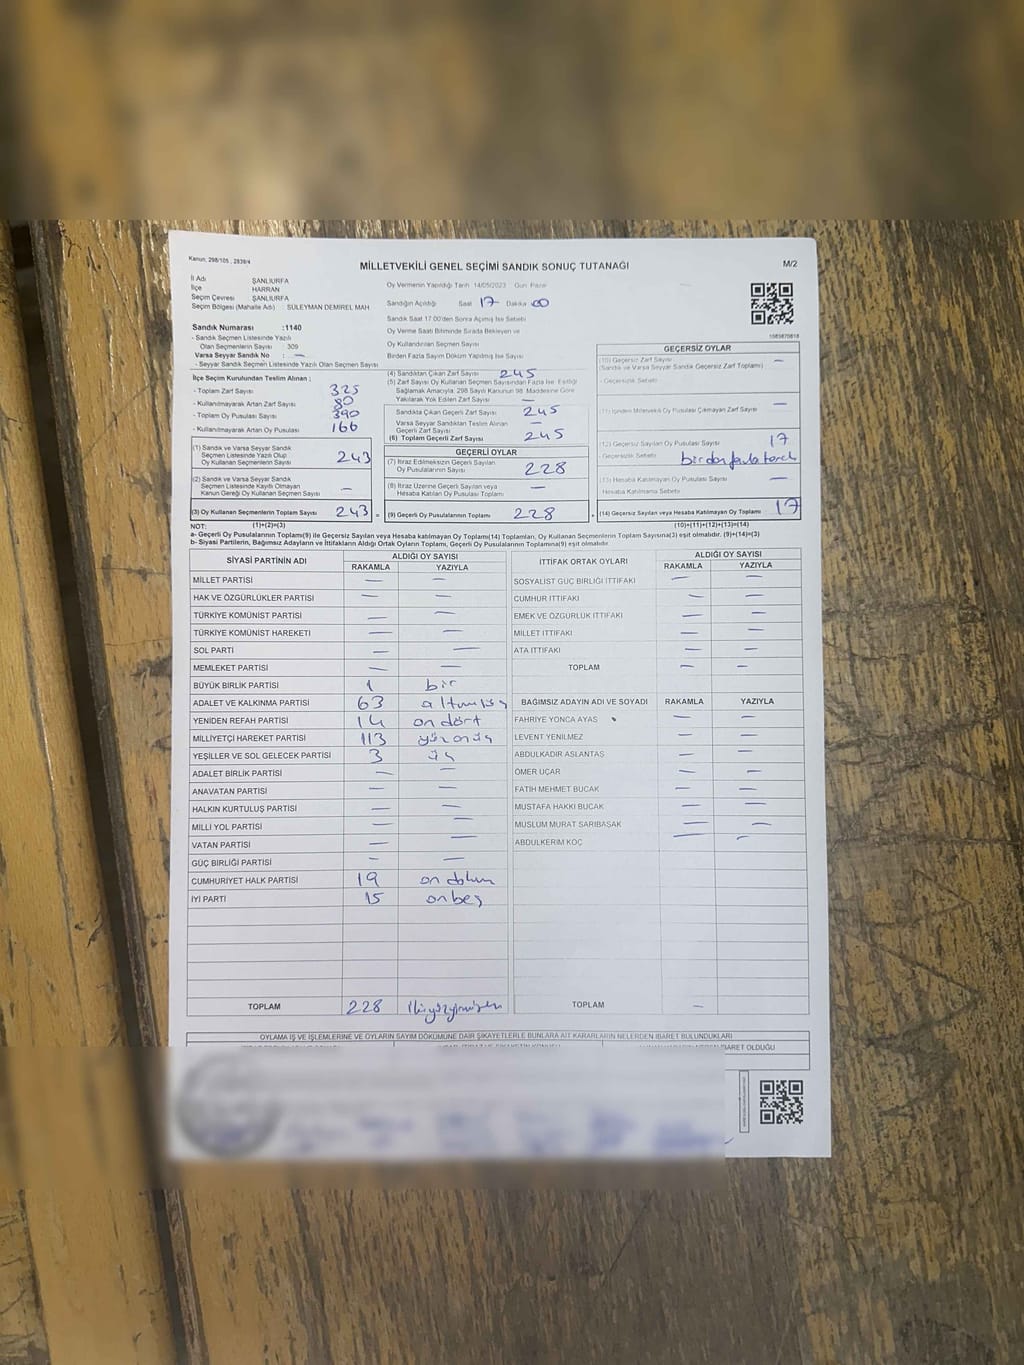 Kanun: 298/105 , 2839/4
MİLLETVEKİLİ GENEL SEÇİMİ SANDIK SONUÇ TUTANAĞI
M/2
İl Adı ŞANLIURFA
İlçe HARRAN
Seçim Çevresi ŞANLIURFA
Seçim Bölgesi (Mahalle Adı) SÜLEYMAN DEMİREL MAH
Sandık Numarası :1140
- Sandık Seçmen Listesinde Yazılı
Olan Seçmenlerin Sayısı : 309
Varsa Seyyar Sandık No : —
- Seyyar Sandık Seçmen Listesinde Yazılı Olan Seçmen Sayısı
İlçe Seçim Kurulundan Teslim Alınan ;
- Toplam Zarf Sayısı 325
- Kullanılmayarak Artan Zarf Sayısı 80
- Toplam Oy Pusulası Sayısı 390
- Kullanılmayarak Artan Oy Pusulası 166
(1) Sandık ve Varsa Seyyar Sandık
Seçmen Listesinde Yazılı Olup
Oy Kullanan Seçmenlerin Sayısı 243
(2) Sandık ve Varsa Seyyar Sandık
Seçmen Listesinde Kayıtlı Olmayan
Kanun Gereği Oy Kullanan Seçmen Sayısı —
(3) Oy Kullanan Seçmenlerin Toplam Sayısı 243 =
Oy Vermenin Yapıldığı Tarih 14/05/2023 Gün Pazar
Sandığın Açıldığı Saat 17 Dakika 00
Sandık Saat 17:00'den Sonra Açılmış İse Sebebi
Oy Verme Saati Bitiminde Sırada Bekleyen ve
Oy Kullandırılan Seçmen Sayısı
Birden Fazla Sayım Döküm Yapılmış İse Sayısı
(4) Sandıktan Çıkan Zarf Sayısı 245
(5) Zarf Sayısı Oy Kullanan Seçmen Sayısından Fazla İse, Eşitliği
Sağlamak Amacıyla; 298 Sayılı Kanunun 98. Maddesine Göre
Yakılarak Yok Edilen Zarf Sayısı —
Sandıkta Çıkan Geçerli Zarf Sayısı 245
Varsa Seyyar Sandıktan Teslim Alınan
Geçerli Zarf Sayısı —
(6) Toplam Geçerli Zarf Sayısı 245
GEÇERLİ OYLAR
(7) İtiraz Edilmeksizin Geçerli Sayılan
Oy Pusulalarının Sayısı 228
(8) İtiraz Üzerine Geçerli Sayılan veya
Hesaba Katılan Oy Pusulası Toplamı —
(9) Geçerli Oy Pusulalarının Toplamı 228 +
GEÇERSİZ OYLAR
(10) Geçersiz Zarf Sayısı
(Sandık ve Varsa Seyyar Sandık Geçersiz Zarf Toplamı) —
- Geçersizlik Sebebi
(11) İçinden Milletvekili Oy Pusulası Çıkmayan Zarf Sayısı —
(12) Geçersiz Sayılan Oy Pusulası Sayısı 17
- Geçersizlik Sebebi
(13) Hesaba Katılmayan Oy Pusulası Sayısı —
Hesaba Katılmama Sebebi
(14) Geçersiz Sayılan veya Hesaba Katılmayan Oy Toplamı 17
NOT: (1)+(2)=(3) (10)+(11)+(12)+(13)=(14)
a- Geçerli Oy Pusulalarının Toplamı(9) ile Geçersiz Sayılan veya Hesaba katılmayan Oy Toplamı(14) Toplamları, Oy Kullanan Seçmenlerin Toplam Sayısına(3) eşit olmalıdır. (9)+(14)=(3)
b- Siyasi Partilerin, Bağımsız Adayların ve İttifakların Aldığı Ortak Oyların Toplamı, Geçerli Oy Pusulalarının Toplamına(9) eşit olmalıdır.
SİYASİ PARTİNİN ADI ALDIĞI OY SAYISI
RAKAMLA YAZIYLA
MİLLET PARTİSİ — —
HAK VE ÖZGÜRLÜKLER PARTİSİ — —
TÜRKİYE KOMÜNİST PARTİSİ — —
TÜRKİYE KOMÜNİST HAREKETİ — —
SOL PARTİ — —
MEMLEKET PARTİSİ — —
BÜYÜK BİRLİK PARTİSİ 1 bir
ADALET VE KALKINMA PARTİSİ 63 altmışüç
YENİDEN REFAH PARTİSİ 14 on dört
MİLLİYETÇİ HAREKET PARTİSİ 113 yüzonüç
YEŞİLLER VE SOL GELECEK PARTİSİ 3 üç
ADALET BİRLİK PARTİSİ — —
ANAVATAN PARTİSİ — —
HALKIN KURTULUŞ PARTİSİ — —
MİLLİ YOL PARTİSİ — —
VATAN PARTİSİ — —
GÜÇ BİRLİĞİ PARTİSİ — —
CUMHURİYET HALK PARTİSİ 19 on dokuz
İYİ PARTİ 15 onbeş
TOPLAM 228
İTTİFAK ORTAK OYLARI ALDIĞI OY SAYISI
RAKAMLA YAZIYLA
SOSYALİST GÜÇ BİRLİĞİ İTTİFAKI — —
CUMHUR İTTİFAKI — —
EMEK VE ÖZGÜRLÜK İTTİFAKI — —
MİLLET İTTİFAKI — —
ATA İTTİFAKI — —
TOPLAM — —
BAĞIMSIZ ADAYIN ADI VE SOYADI RAKAMLA YAZIYLA
FAHRİYE YONCA AYAS — —
LEVENT YENİLMEZ — —
ABDULKADİR ASLANTAŞ — —
ÖMER UÇAR — —
FATİH MEHMET BUCAK — —
MUSTAFA HAKKI BUCAK — —
MÜSLÜM MURAT SARIBAŞAK — —
ABDULKERİM KOÇ — —
TOPLAM —
OYLAMA İŞ VE İŞLEMLERİNE VE OYLARIN SAYIM DÖKÜMÜNE DAİR ŞİKAYETLERLE BUNLARA AİT KARARLARIN NELERDEN İBARET BULUNDUKLARI